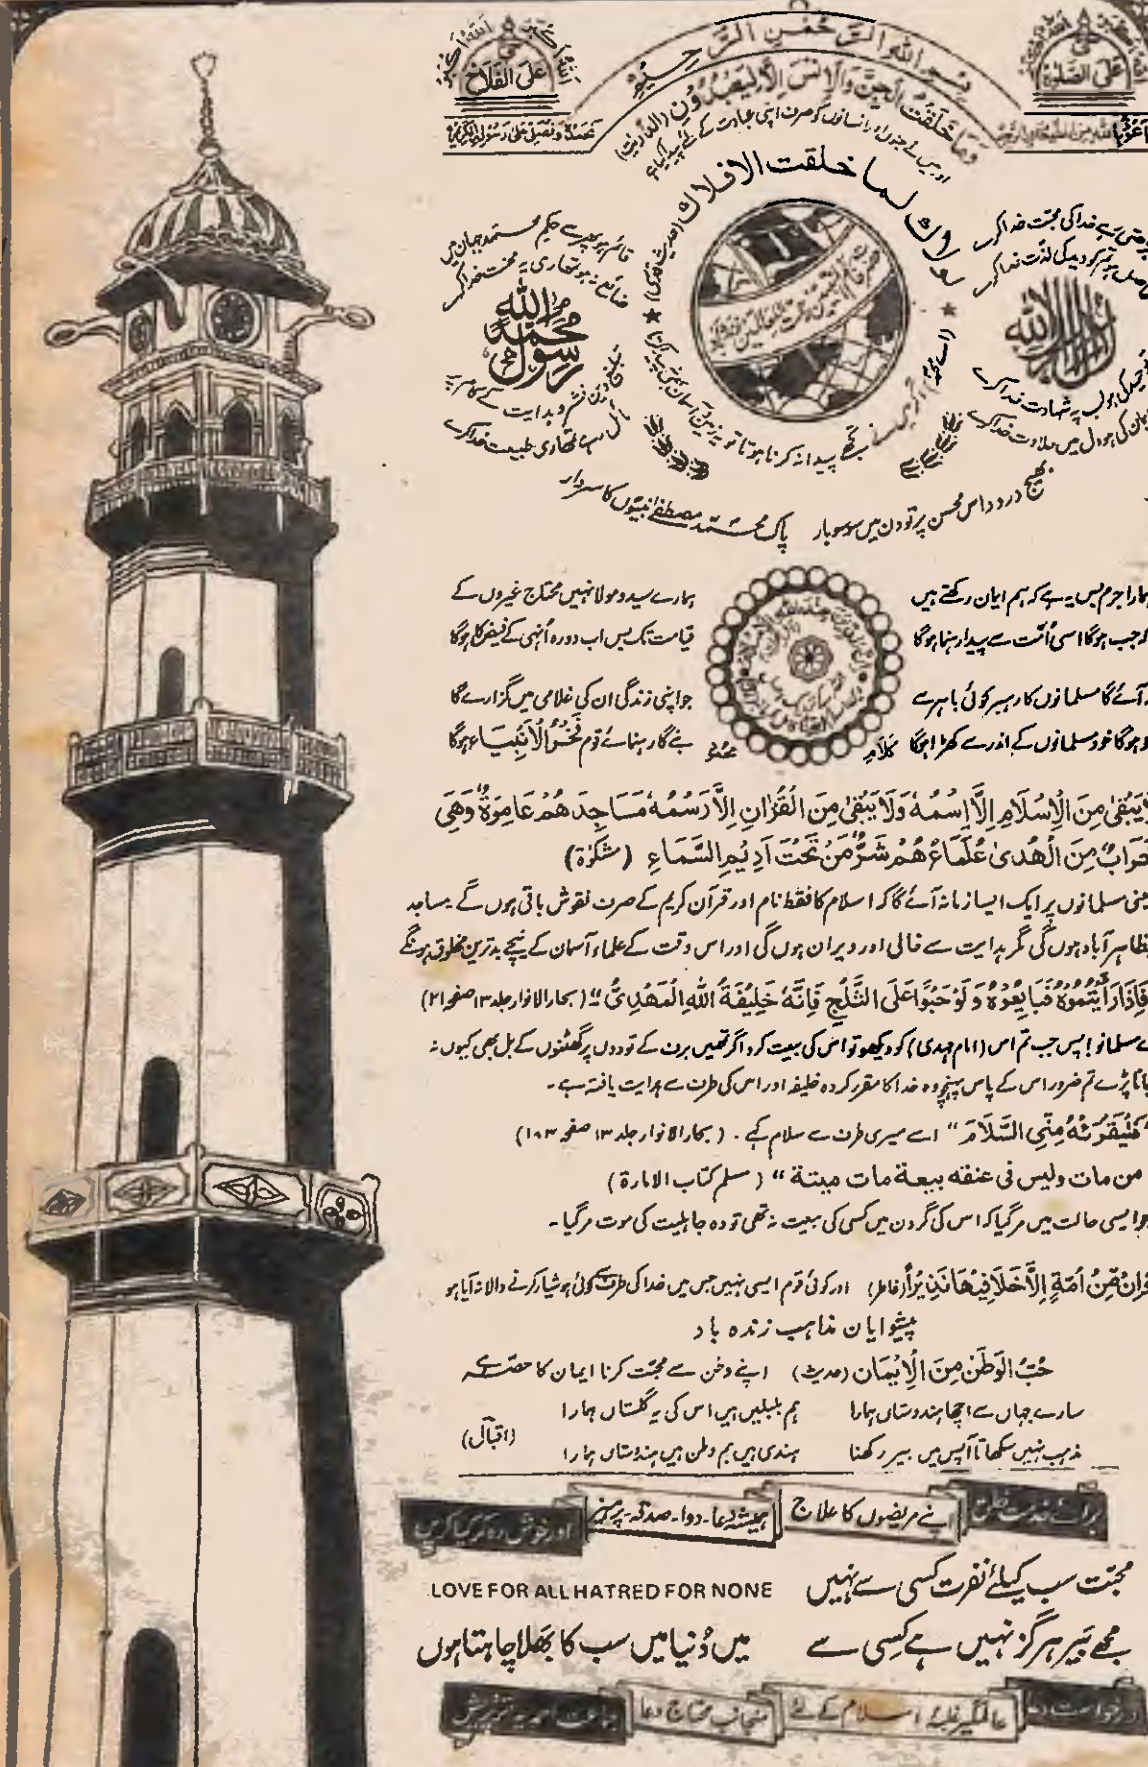 اللہ اکبر اللہ اکبر
علی الفلاح
نحمدہ و نصلی علی رسولہ الکریم
علی الصلوٰۃ
بسم اللہ الرحمٰن الرحیم
وما خلقت الجن والانس الا لیعبدون (الذاریات)
اور میں نے جنوں اور انسانوں کو صرف اپنی عبادت کے لئے پیدا کیا ہے
لولاک لما خلقت الافلاک (حدیث قدسی)
لا الہ الا اللہ
محمد رسول اللہ
قائم ہو پھر سے حکم محمد جہان میں
ضائع نہ ہو تمھاری یہ محنت خدا کرے
توحید کی ہو لب پہ شہادت خدا کرے
ایمان کی ہو دل میں حلاوت خدا کرے
تمھاری طبیعت خدا کرے
بھیج درود اس محسن پر تو دن میں سو سو بار
پاک محمد مصطفےٰ نبیوں کا سردار
ہمارا جرم بس یہ ہے کہ ہم ایمان رکھتے ہیں
ہمارے سید و مولا نہیں محتاج غیروں کے
کہ جب ہوگا اسی اُمت سے پیدا رہنما ہوگا
قیامت تک بس اب دورہ اُنہی کے فیض کا ہوگا
نہ آئے گا مسلمانوں کا رہبر کوئی باہر سے
جو اپنی زندگی ان کی غلامی میں گزارے گا
جو ہوگا خود مسلمانوں کے اندر سے کھڑا ہوگا
بنے گا رہنمائے قوم فخر الانبیاء ہوگا
لا یبقیٰ من الاسلام الا اسمہ ولا یبقیٰ من القراٰن الا رسمہ مساجدھم عامرۃ وھی
خراب من الھدیٰ علماءھم شر من تحت ادیم السماء (مشکوٰۃ)
یعنی مسلمانوں پر ایک ایسا زمانہ آئے گا کہ اسلام کا فقط نام اور قرآن کریم کے صرف نقوش باقی ہوں گے۔ مساجد
بظاہر آباد ہوں گی مگر ہدایت سے خالی اور ویران ہوں گی اور اس وقت کے علماء آسمان کے نیچے بدترین مخلوق ہونگے
فاذا رأیتموہ فبایعوہ ولو حبوا علی الثلج فانہ خلیفۃ اللہ المھدی" (بحار الانوار جلد ۱۳ صفحہ ۲۱)
اے مسلمانو! پس جب تم اس (امام مہدی) کو دیکھو تو اس کی بیعت کرو اگر تمھیں برف کے تودوں پر گھٹنوں کے بل بھی کیوں نہ
جانا پڑے تم ضرور اس کے پاس پہنچو وہ خدا کا مقرر کردہ خلیفہ اور اس کی طرف سے ہدایت یافتہ ہے۔
"فلیقرئہ منی السلام" اسے میری طرف سے سلام کہے۔ (بحار الانوار جلد ۱۳ صفحہ ۱۸۳)
من مات ولیس فی عنقہ بیعۃ مات میتۃ" (مسلم کتاب الامارۃ)
جو ایسی حالت میں مر گیا کہ اس کی گردن میں کسی کی بیعت نہ تھی تو وہ جاہلیت کی موت مر گیا۔
وان من امۃ الا خلا فیھا نذیر (فاطر) اور کوئی قوم ایسی نہیں جس میں خدا کی طرف سے کوئی ہوشیار کرنے والا نہ آیا ہو
پیشوایان مذاہب زندہ باد
حُبُّ الوطن من الایمان (حدیث) اپنے وطن سے محبت کرنا ایمان کا حصہ ہے
سارے جہاں سے اچھا ہندوستاں ہمارا ہم بلبلیں ہیں اس کی یہ گلستاں ہمارا
مذہب نہیں سکھاتا آپس میں بیر رکھنا ہندی ہیں ہم وطن ہیں ہندوستاں ہمارا
(اقبال)
برائے خدمت خلق اپنے مریضوں کا علاج ہمیشہ دعا۔ دوا۔ صدقہ۔ پرہیز اور خوش رہ کر کیا کریں
محبت سب کیلئے نفرت کسی سے نہیں LOVE FOR ALL HATRED FOR NONE
مجھے بیر ہرگز نہیں ہے کسی سے میں دُنیا میں سب کا بھلا چاہتا ہوں
درخواست دعا عالمگیر غلبۂ اسلام کے لئے منجانب محتاج دعا جماعت احمدیہ